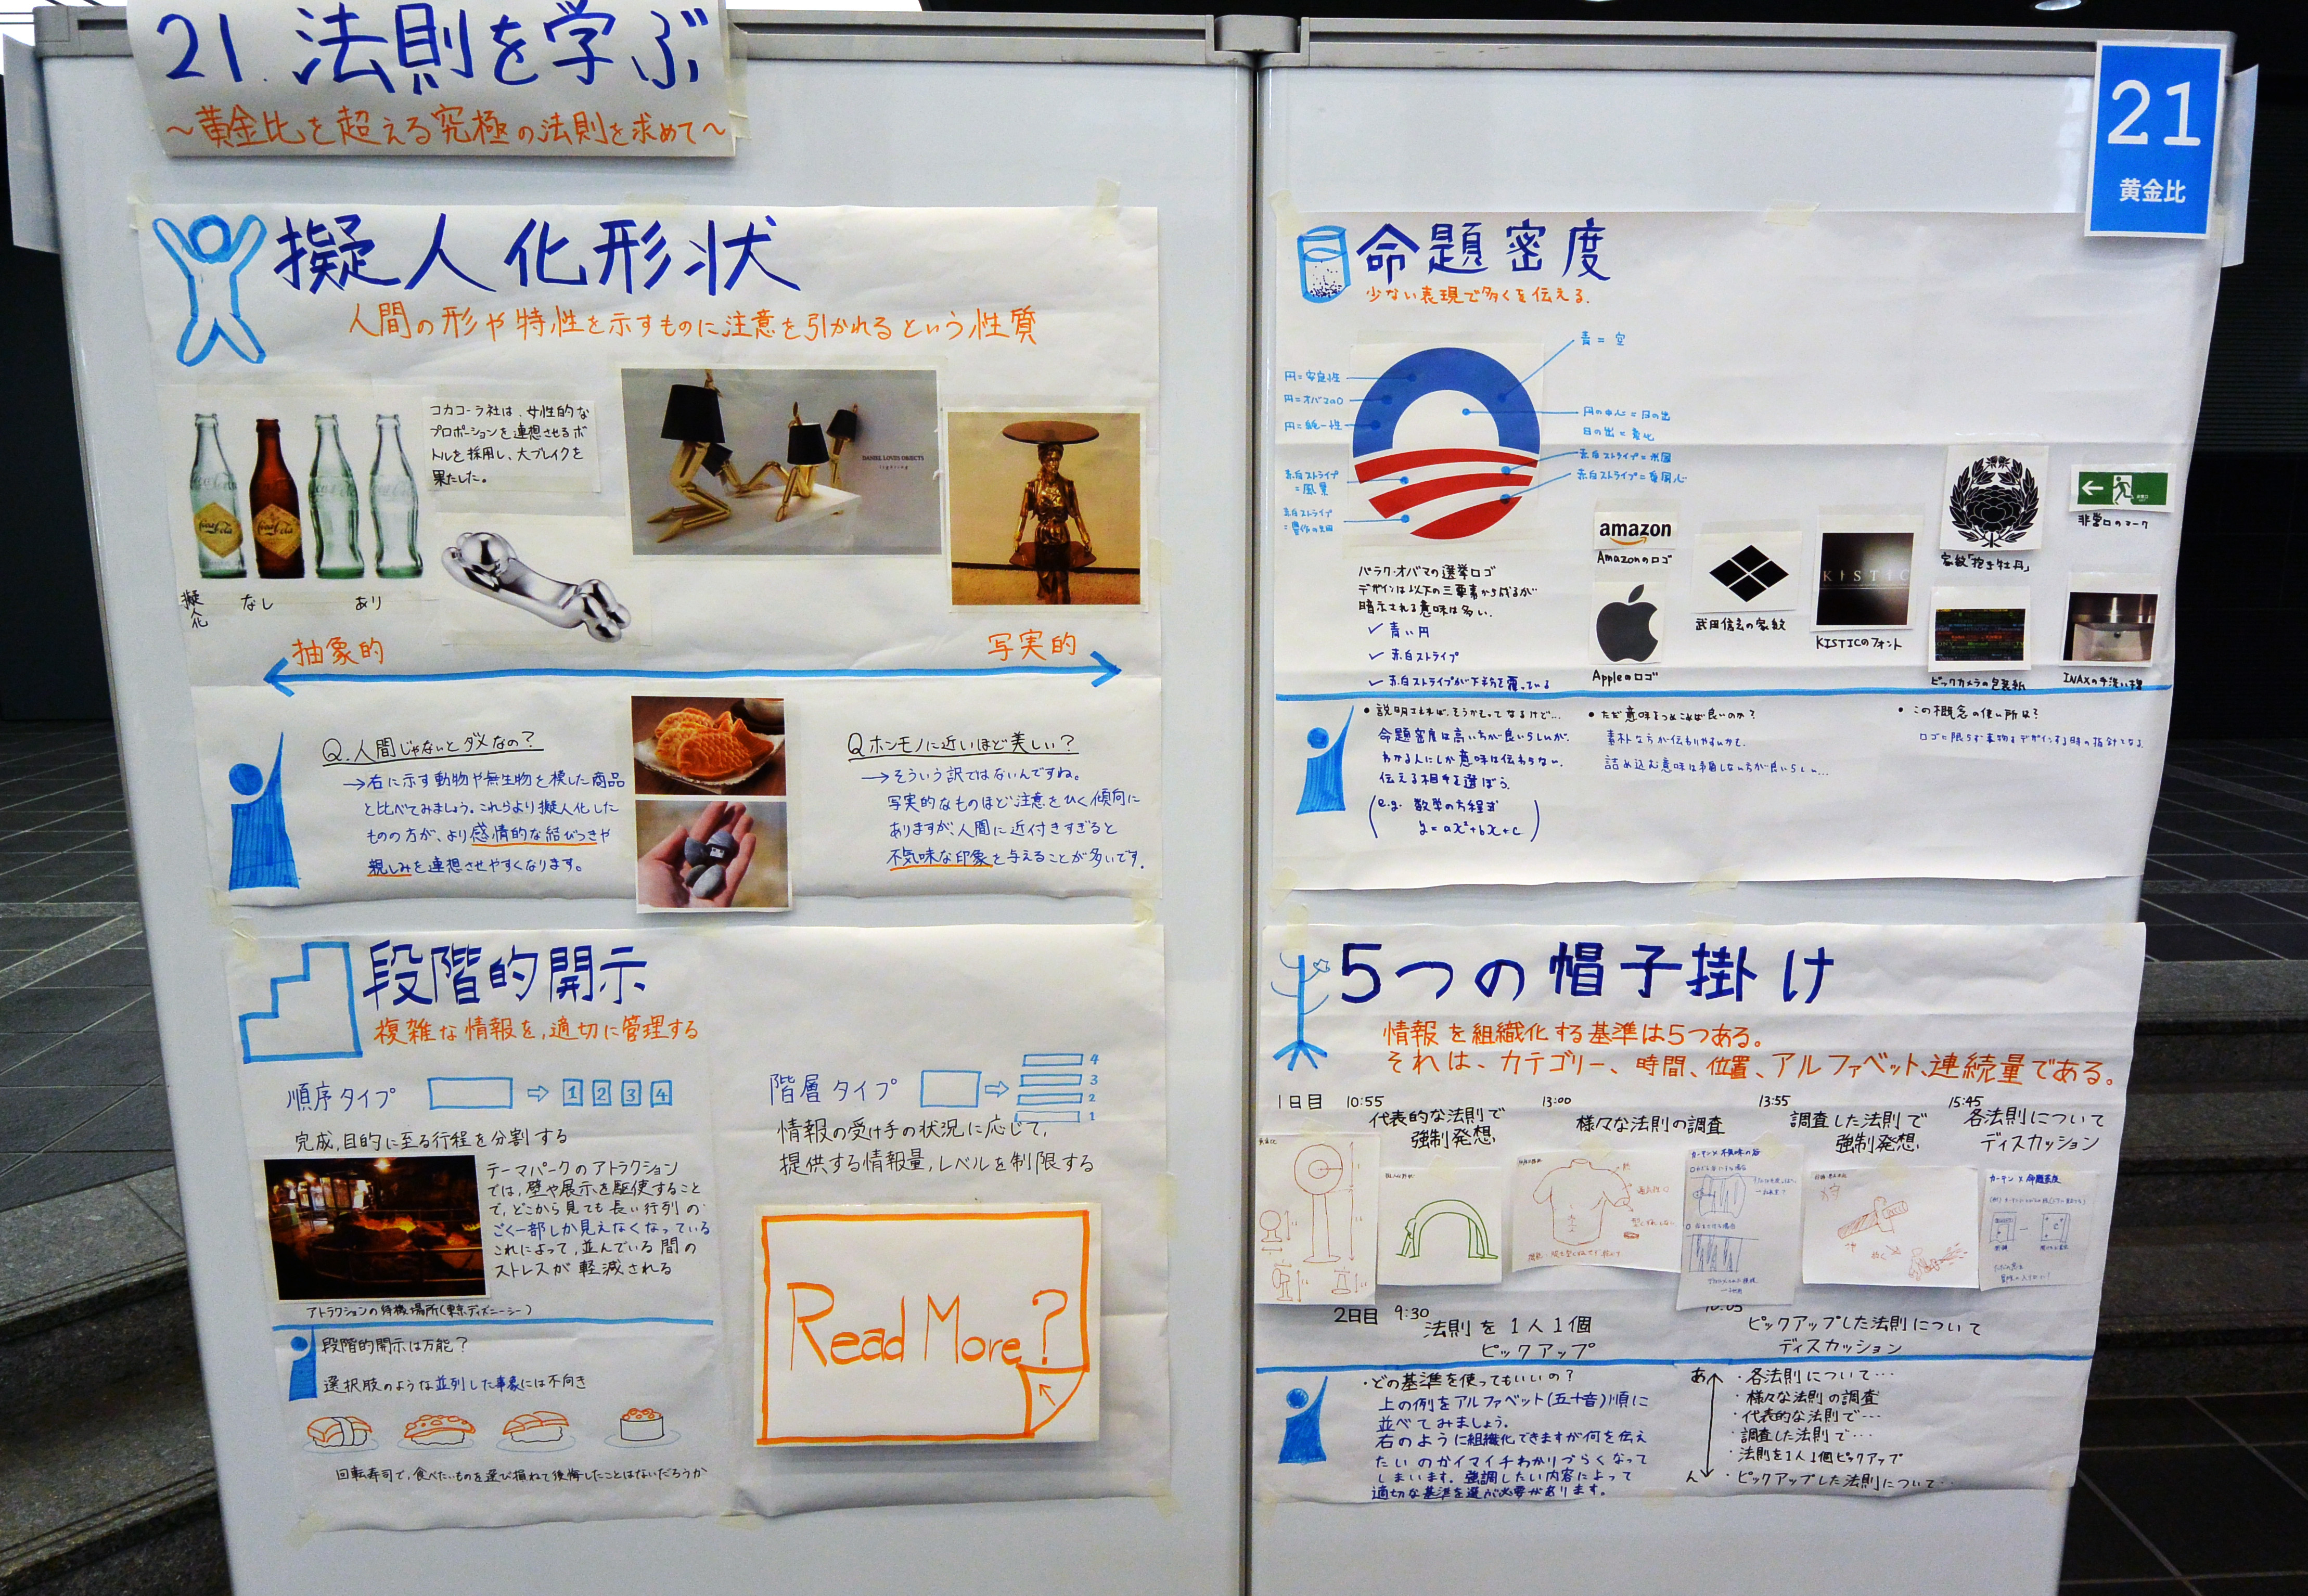 21. 法則を学ぶ
～黄金比を超える究極の法則を求めて～
擬人化形状
人間の形や特性を示すものに注意を引かれるという性質
コカコーラ社は、女性的な
プロポーションを連想させるボ
トルを採用し、大ブレイクを
果たした。
DANIEL LOVES OBJECTS
lighting
擬人化
なし
あり
抽象的
写実的
Q.人間じゃないとダメなの?
→右に示す動物や無生物を模した商品
と比べてみましょう。これらより擬人化した
ものの方が、より感情的な結びつきや
親しみを連想させやすくなります。
Qホンモノに近いほど美しい?
→そういう訳ではないんですね。
写実的なものほど注意をひく傾向に
ありますが、人間に近付きすぎると
不気味な印象を与えることが多いです。
段階的開示
複雑な情報を,適切に管理する
順序タイプ
1 2 3 4
完成,目的に至る行程を分割する
テーマパークのアトラクション
では,壁や展示を駆使すること
で,どこから見ても長い行列の
ごく一部しか見えなくなっている
これによって,並んでいる間の
ストレスが軽減される
アトラクションの待機場所(東京ディズニーシー)
段階的開示は万能?
選択肢のような並列した事象には不向き
回転寿司で,食べたいものを選び損ねて後悔したことはないだろうか
階層タイプ
4
3
2
1
情報の受け手の状況に応じて,
提供する情報量,レベルを制限する
Read More?
21
黄金比
命題密度
少ない表現で多くを伝える.
青=空
円=安定性
円=オバマのO
円=統一性
円の中心=日の出
日の出=変化
赤白ストライプ=米国
赤白ストライプ=愛国心
赤白ストライプ
=風景
赤白ストライプ
バラク・オバマの選挙ロゴ
デザインは以下の三要素から成るが
暗示される意味は多い.
✓ 青い円
✓ 赤白ストライプ
✓ 赤白ストライプが下半分を覆っている
amazon
Amazonのロゴ
Appleのロゴ
武田信玄の家紋
KISTIC
KISTICのフォント
家紋「抱き牡丹」
非常口のマーク
ビックカメラの包装紙
INAXの手洗い機
・説明されれば、そうかもってなるけど…
命題密度は高い方が良いらしいが、
わかる人にしか意味は伝わらない.
伝える相手を選ぼう.
(e.g. 数学の方程式
y=ax²+bx+c)
・ただ意味をつめこめば良いのか?
素朴な方が伝わりやすいかも.
詰め込む意味は矛盾しない方が良いらしい…
・この概念の使い所は?
ロゴに限らず事物をデザインする時の指針となる.
5つの帽子掛け
情報を組織化する基準は5つある。
それは、カテゴリー、時間、位置、アルファベット、連続量である。
1日目
10:55
代表的な法則で
強制発想
13:00
様々な法則の調査
13:55
調査した法則で
強制発想
15:45
各法則について
ディスカッション
カーテン×不気味の谷
カーテン×命題密度
2日目
9:30
法則を1人1個
ピックアップ
10:05
ピックアップした法則について
ディスカッション
・どの基準を使ってもいいの?
上の例をアルファベット(五十音)順に
並べてみましょう。
右のように組織化できますが何を伝え
たいのかイマイチわかりづらくなって
しまいます。強調したい内容によって
適切な基準を選ぶ必要があります。
あ
ん
・各法則について…
・様々な法則の調査
・代表的な法則で…
・調査した法則で…
・法則を1人1個ピックアップ
・ピックアップした法則について…